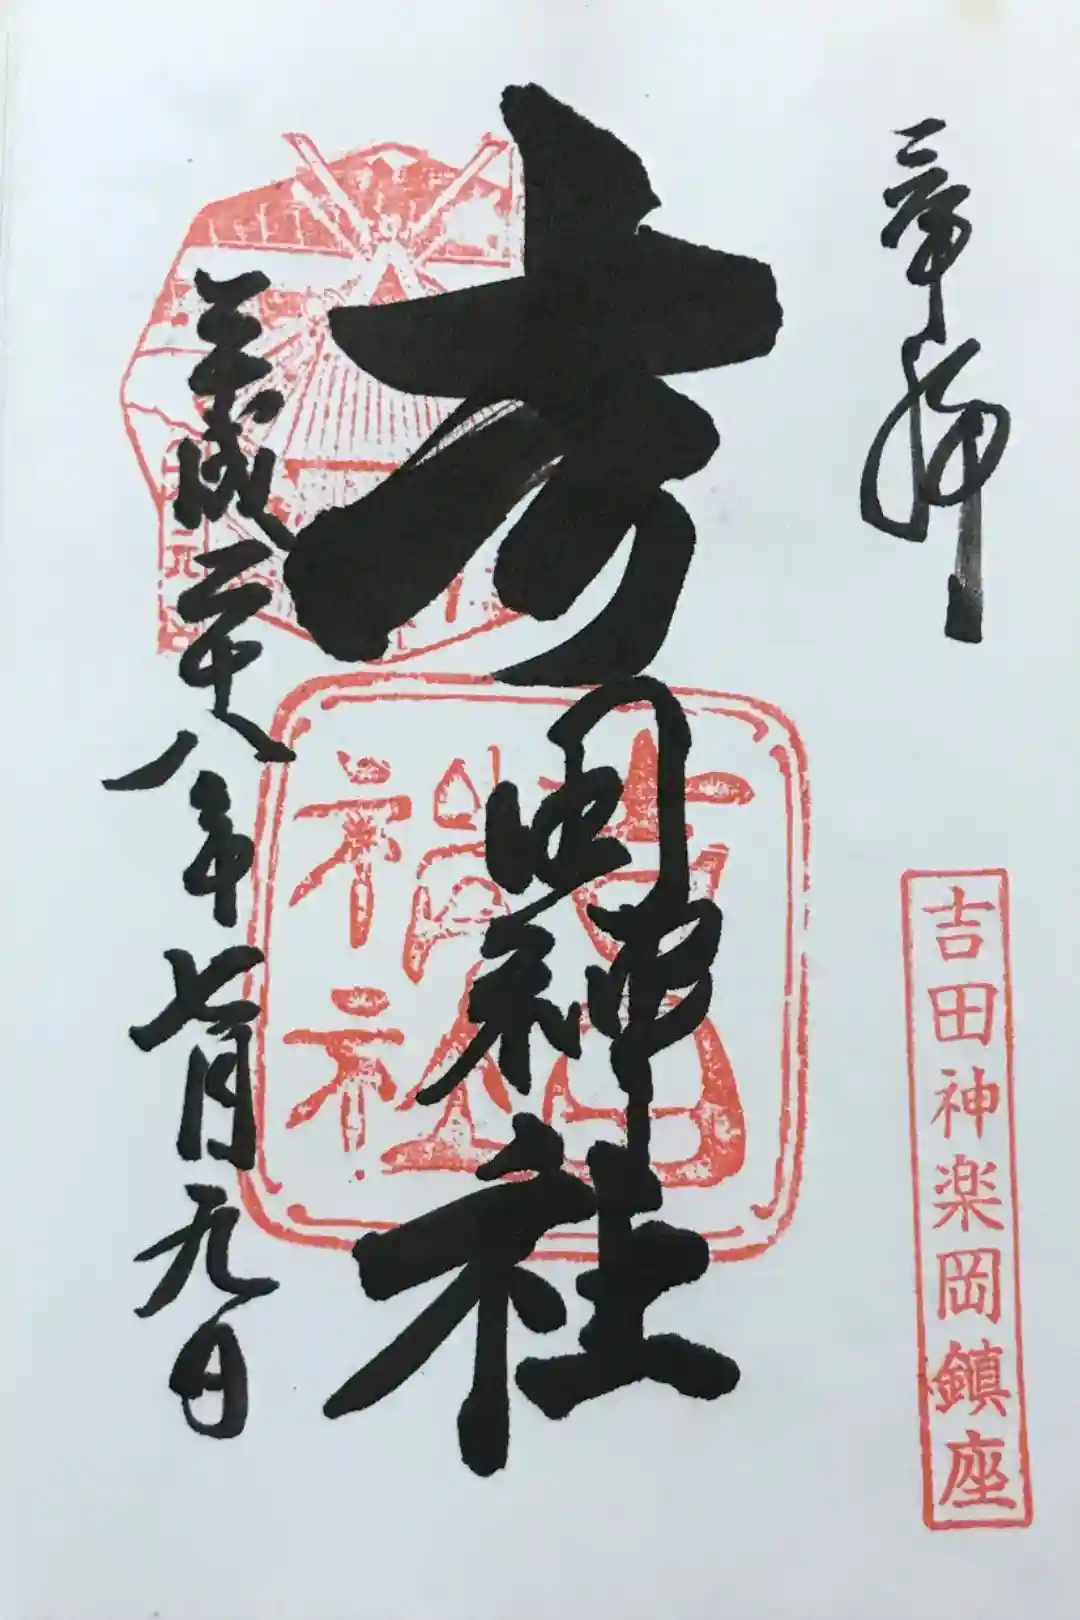 奉拝
吉田神社
平成二十八年七月九日
吉田神楽岡鎮座
吉田神社